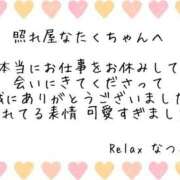 照れ屋なたくちゃんへ
本当にお仕事をお休みして
会いにきてくださって
誠にありがとうございました
れてる表情 可愛すぎました
Relax なつ